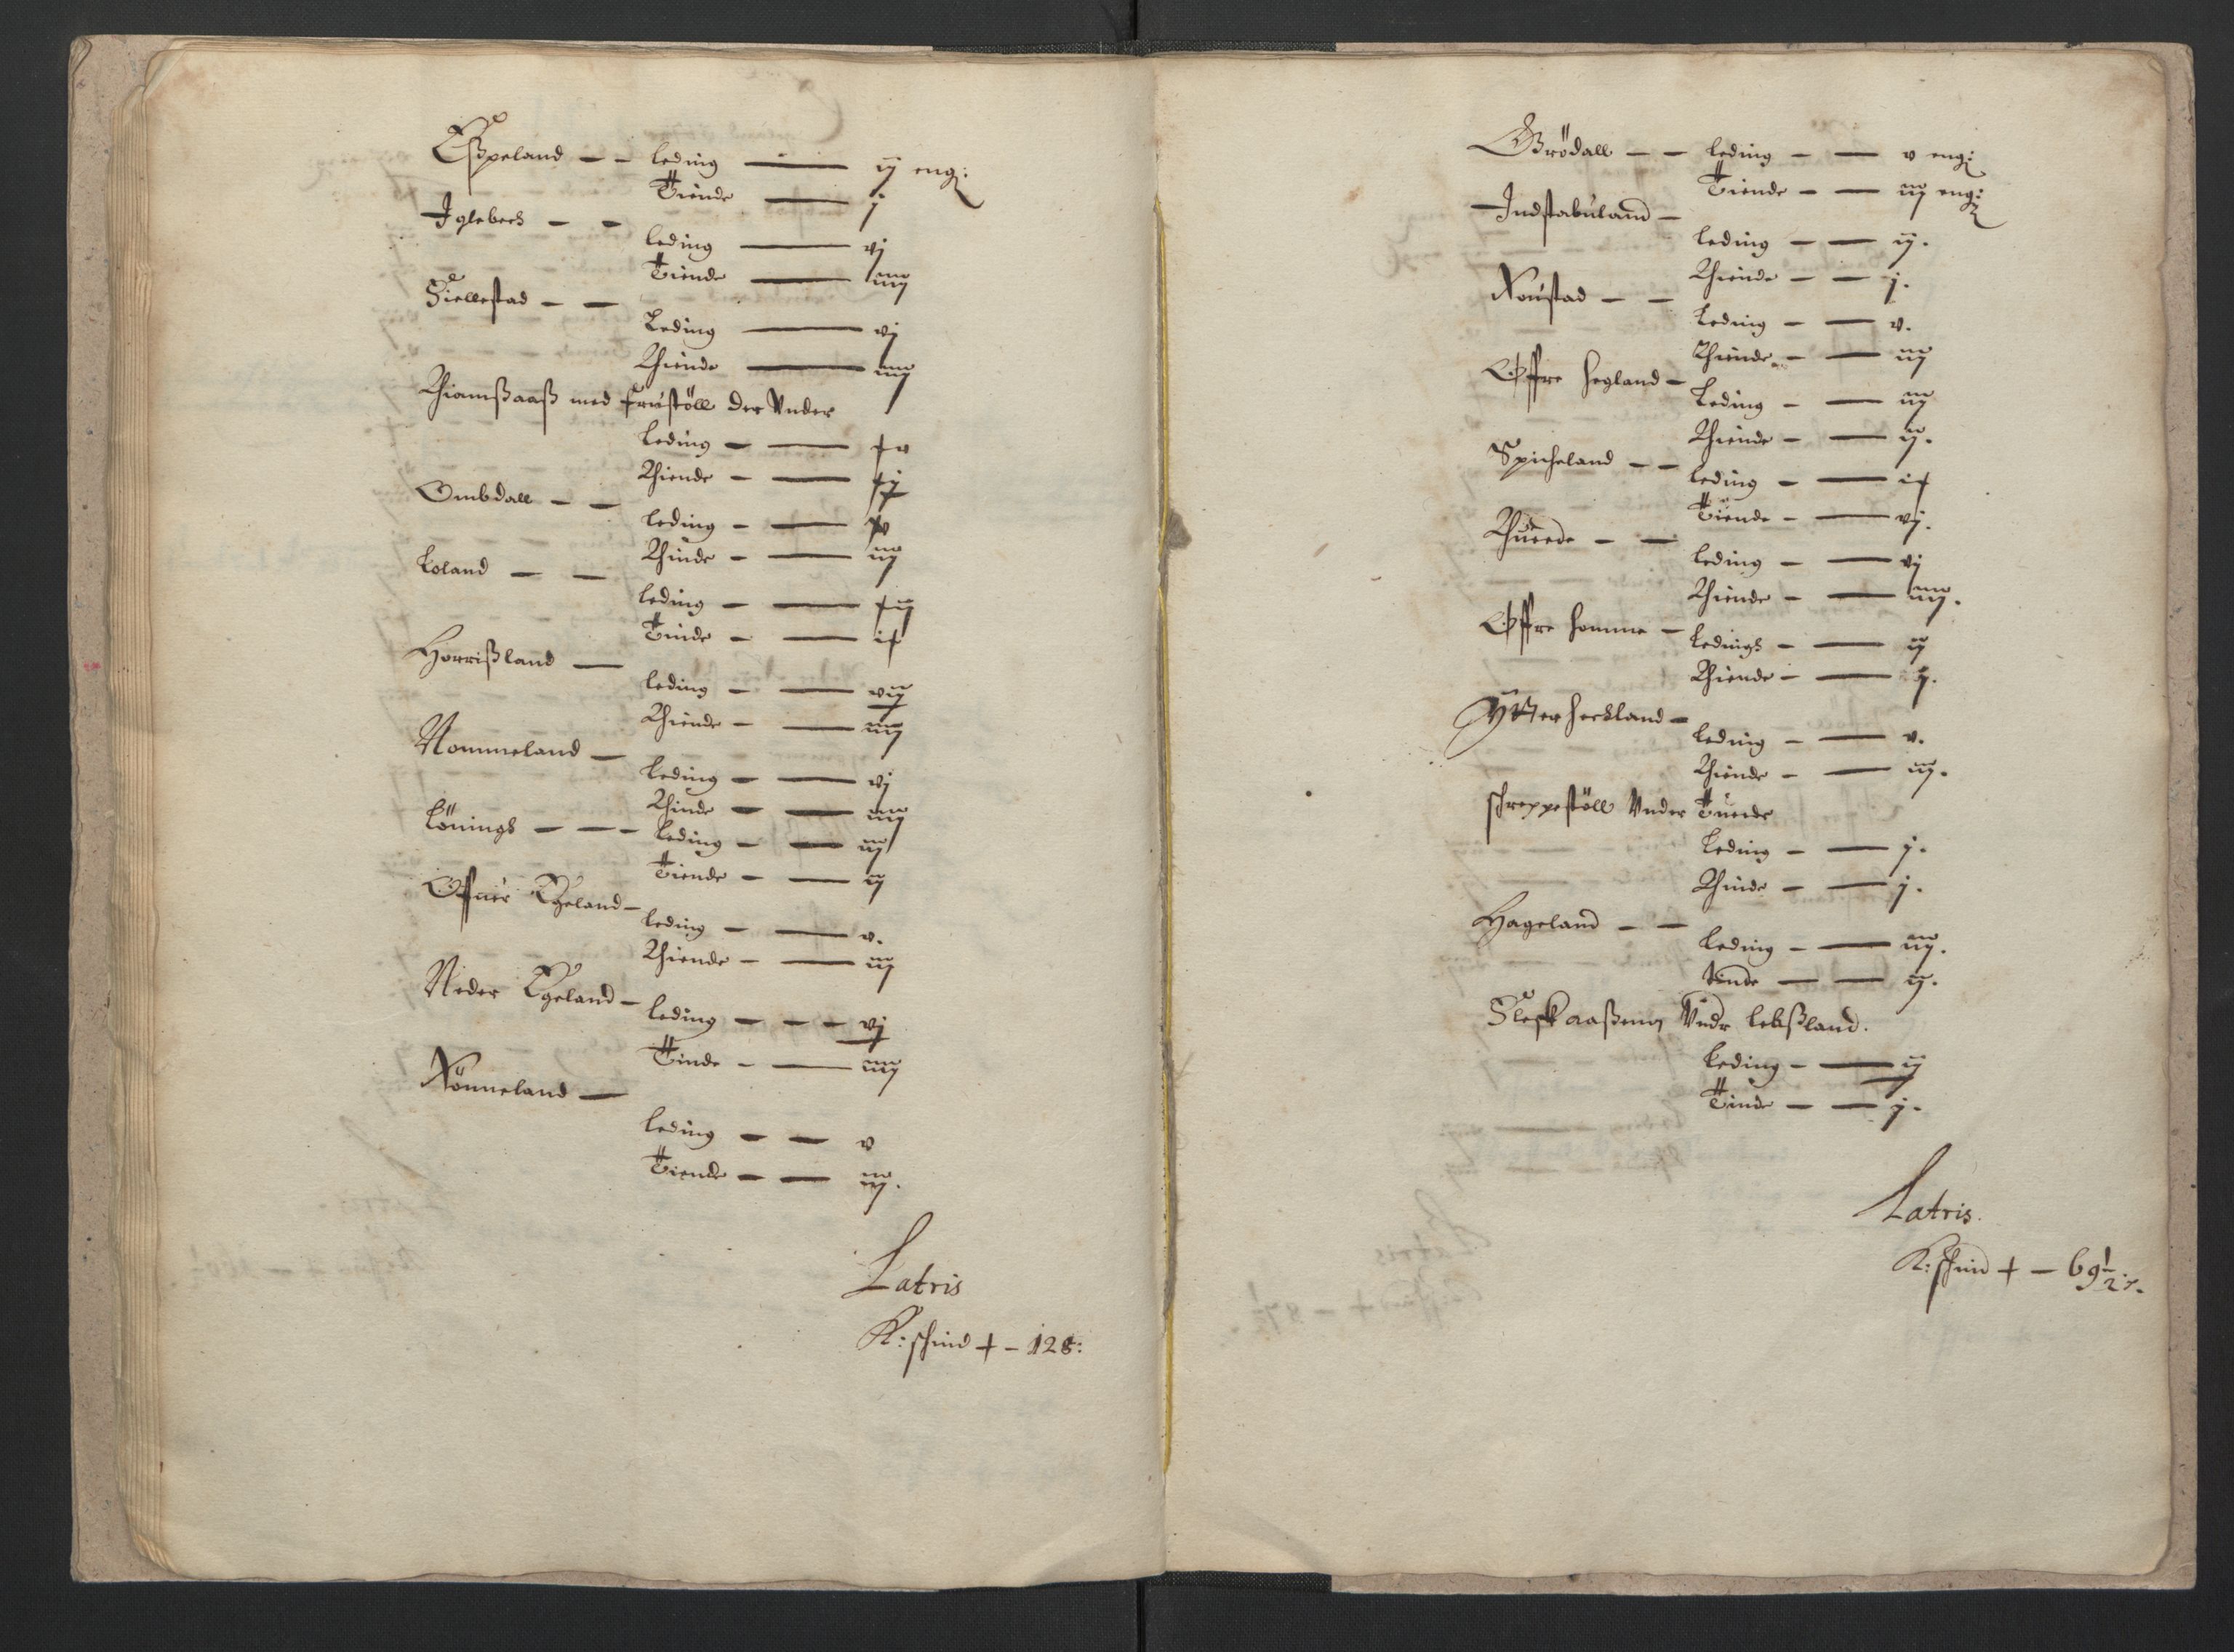 Eßpeland — — leding — ij eng:
Tiende — j
Iglebech — —
leding — vj
Tiende — iiij
Siellestad — —
Leding — vj
Thiende — iiij
Thiamßaaß med frustöll der Vnder
leding — xv
Thiende — xj
Ombdall — —
leding — v
Thinde — iij
Loland — —
leding — xij
Tinde — ix
Horrißland —
leding — vij
Thiende — iiij
Nommeland —
leding — vj
Thinde — iiij
Lönings — — — leding — iij
Tiende — ij
Offuer Egeland —
leding — v.
Thiende — iij
Neder Egeland —
leding — — — vj
Tinde — iiij
Rönneland —
leding — — v
Tiende — — iij.
Latris
K: schind + – 128:
Grödall — — leding — — v eng:
Tiende — — iij eng:
Indstabuland —
leding — — ij.
Thiende — — j.
Roustad — —
leding — — v.
Thiende — — iij
Øffre Hegland —
leding — — iij
Thiende — — ij.
Spicheland — —
leding — — ix
Tiende — — vj.
Thuede — —
leding — — vj
Thiende — — iiij.
Øffre homme —
ledings — — ij
Thiende — — j.
Ytter heckland —
leding — — v.
Thiende — — iij.
schreppestöll Vnder Tuede
leding — — j.
Thinde — — j.
Hageland — —
leding — — iij.
tinde — — ij.
Sleskaaßenn Vndr lekßland.
leding — — ij
Tinde — — j.
Latris.
K: schind + — 69½.